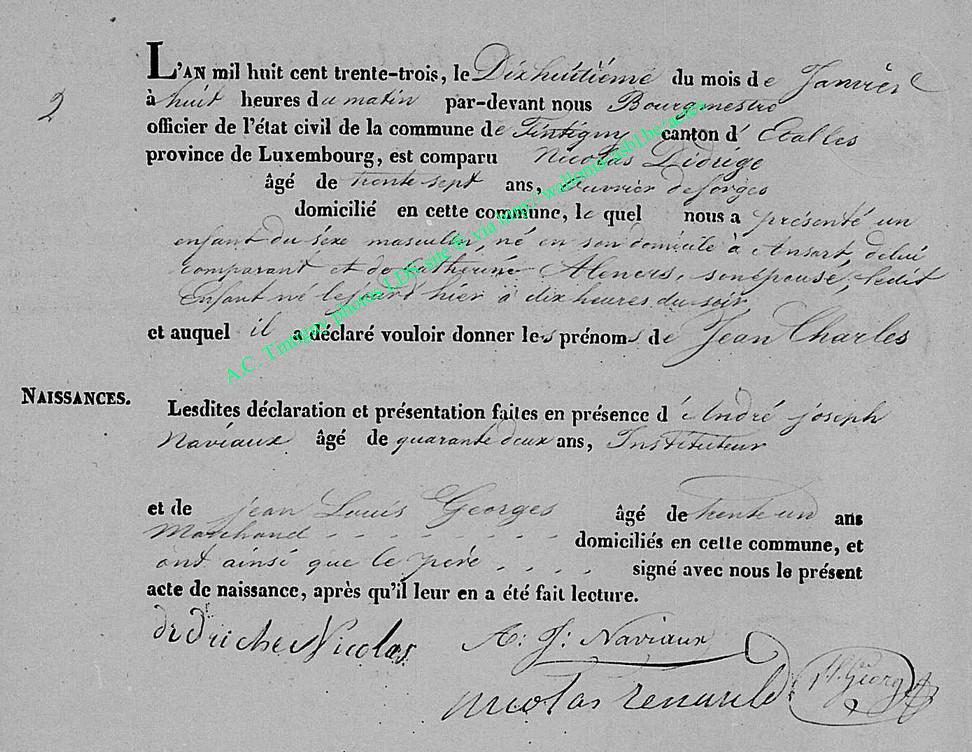 L'AN mil huit cent trente-trois, le Dixhuitième du mois de Janvier
2
à huit heures du matin par-devant nous Bourgmestre
officier de l'état civil de la commune de Tintigny canton d'Etalles
province de Luxembourg, est comparu Nicolas Didrige
âgé de trente-sept ans, ouvrier de forges
domicilié en cette commune, le quel nous a présenté un
enfant du séxe masculin, né en son domicile à Ansart, de lui
comparant et de Cathérine son épouse, ledit
Enfant né hier à dix heures du soir
et auquel il a déclaré vouloir donner les prénoms de Jean Charles
A.C. Tintigny photos LDS site © via http://wallonica
NAISSANCES.
Lesdites déclaration et présentation faites en présence d'André joseph
Naviaux âgé de quarante deux ans, Instituteur
et de jean Louis Georges âgé de trente un ans
Marchand - - - - - - - - domiciliés en cette commune, et
ont ainsi que le père - - - - signé avec nous le présent
acte de naissance, après qu'il leur en a été fait lecture.
Nicolas A: J: Naviaux
nicolas renauld Georg